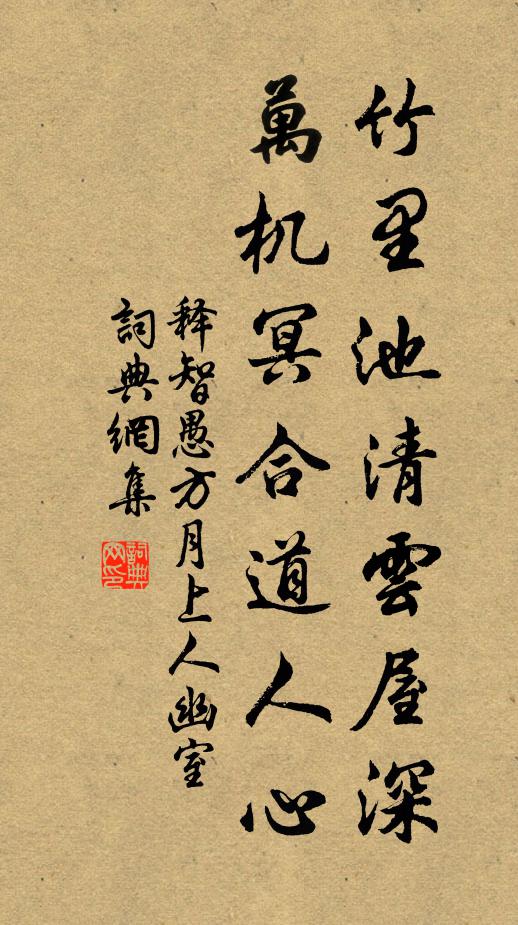 竹里池清雲屋深
萬机冥合道人心
释智愚方月上人幽室
詞典網集
詞典网印